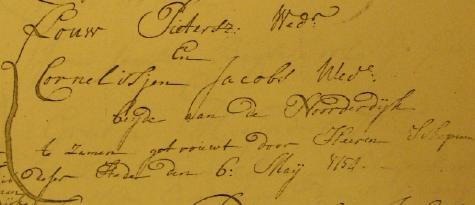 Louw Pietersz: Wedr:
En
Cornelisjen Jacobs Wede:
beyde aan de Noorderdijk
te zamen getrouwt door Heeren Schepenen
deser Stede den 6: May 1754.